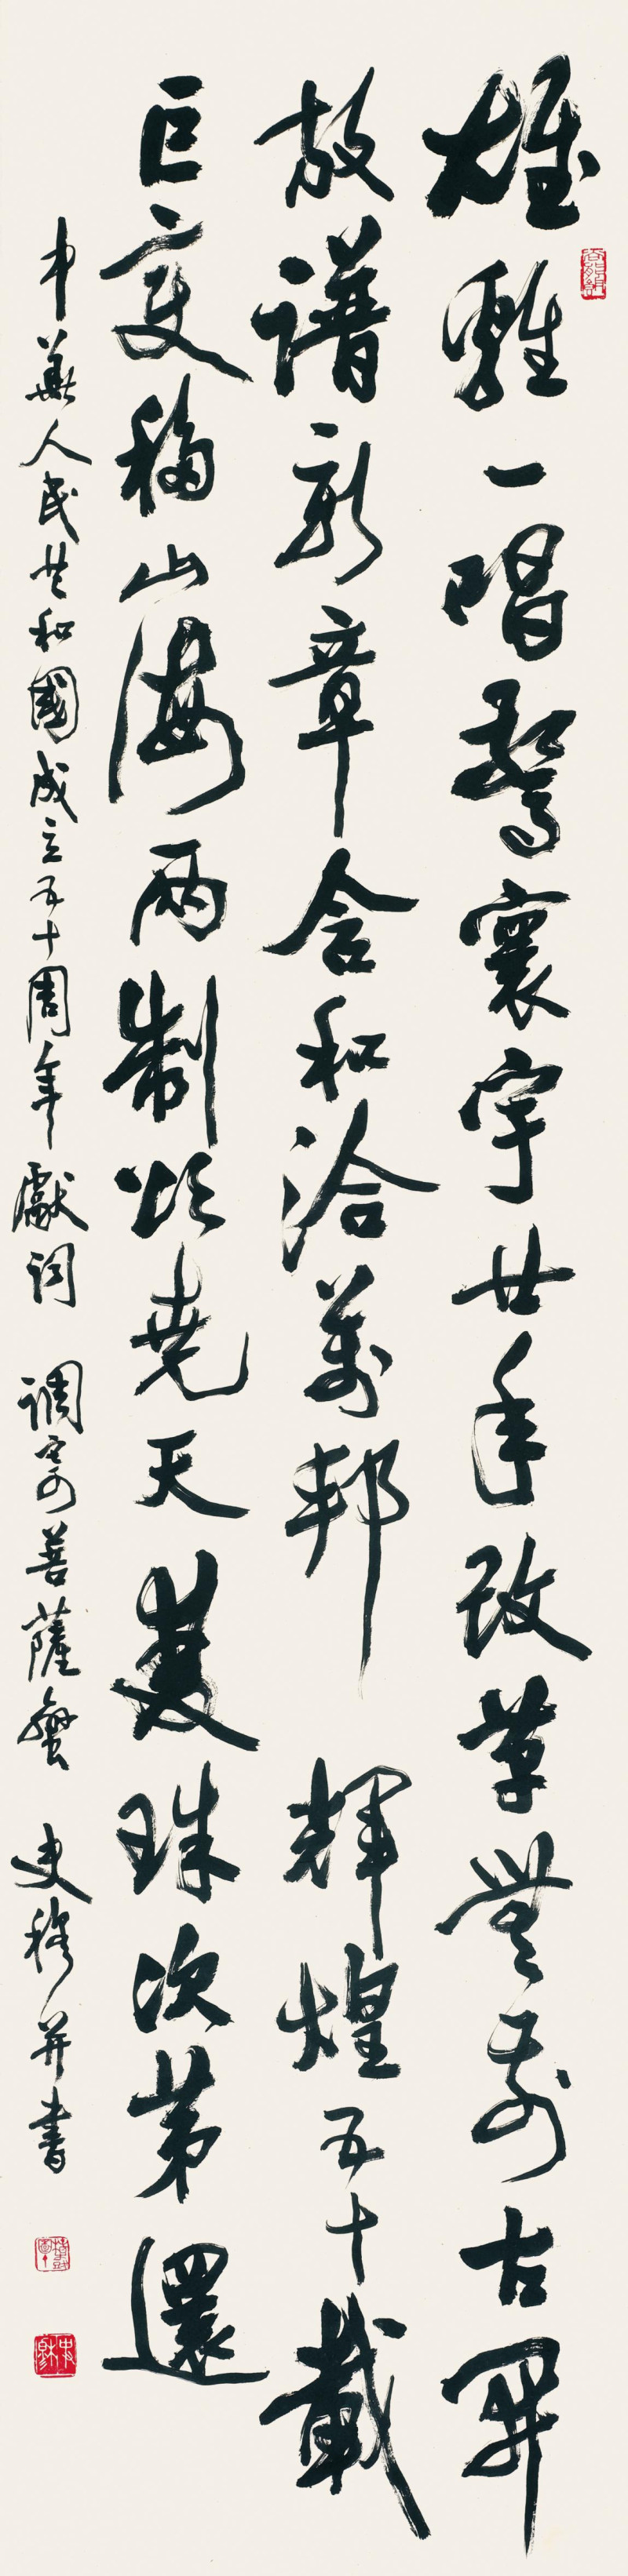 雄雞一唱驚寰宇廿年改革無前古開
放譜新章含和洽萬邦 輝煌五十載
巨變移山海兩制頌堯天雙珠次第還
中華人民共和國成立五十周年獻詞 調寄菩薩蠻 史穆并書